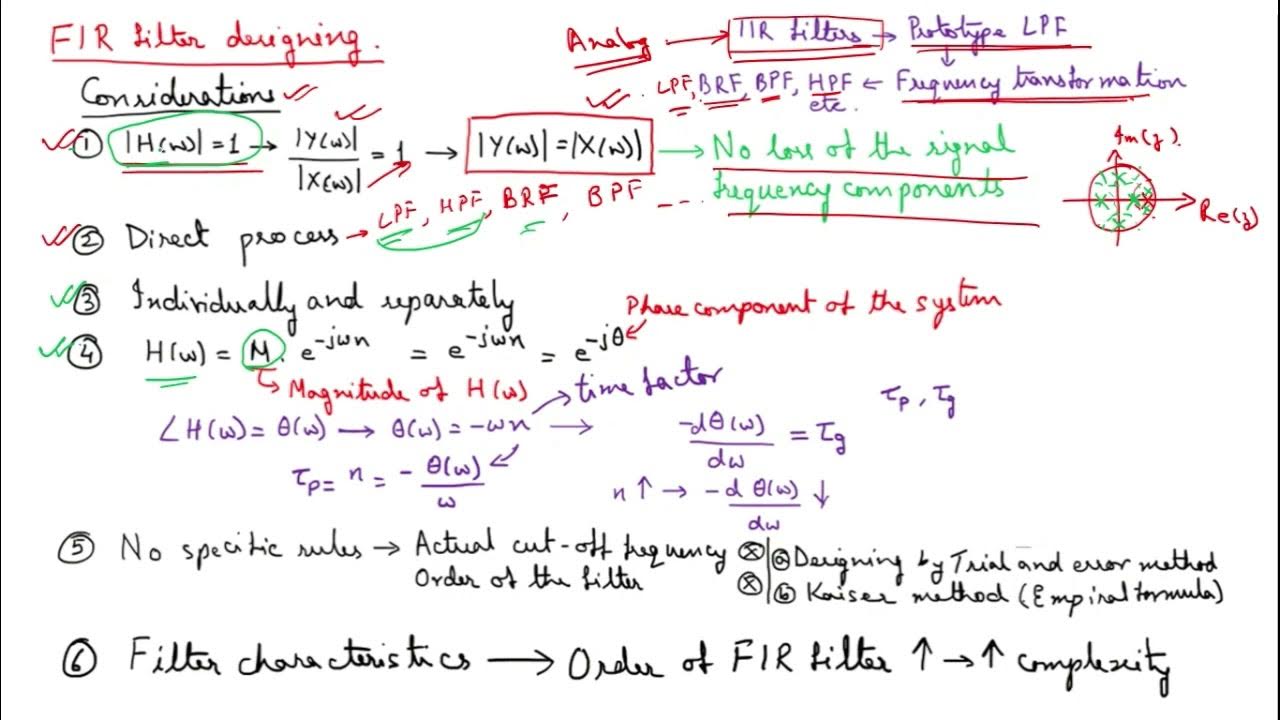 FIR filter designing.
Analog → IIR filters → Prototype LPF
↓
LPF, BRF, BPF, HPF etc. ← Frequency transformation
Considerations
① |H(ω)| = 1 → |Y(ω)| / |X(ω)| = 1 → |Y(ω)| = |X(ω)| → No loss of the signal
frequency components
Im(z).
Re(z)
② Direct process → LPF, HPF, BRF, BPF ---
③ Individually and separately
Phase component of the system
④ H(ω) = M. e^-jωn = e^-jωn = e^-jθ
Magnitude of H(ω)
time factor
τp, τg
∠H(ω) = θ(ω) → θ(ω) = -ωn → -dθ(ω) / dω = τg
τp = n = - θ(ω) / ω
n ↑ → -d θ(ω) / dω ↓
⑤ No specific rules → Actual cut-off frequency ⊗ | ⓐ Designing by Trial and error method
Order of the filter ⊗ | ⓑ Kaiser method (Empiral formula)
⑥ Filter characteristics → Order of FIR filter ↑ → ↑ complexity